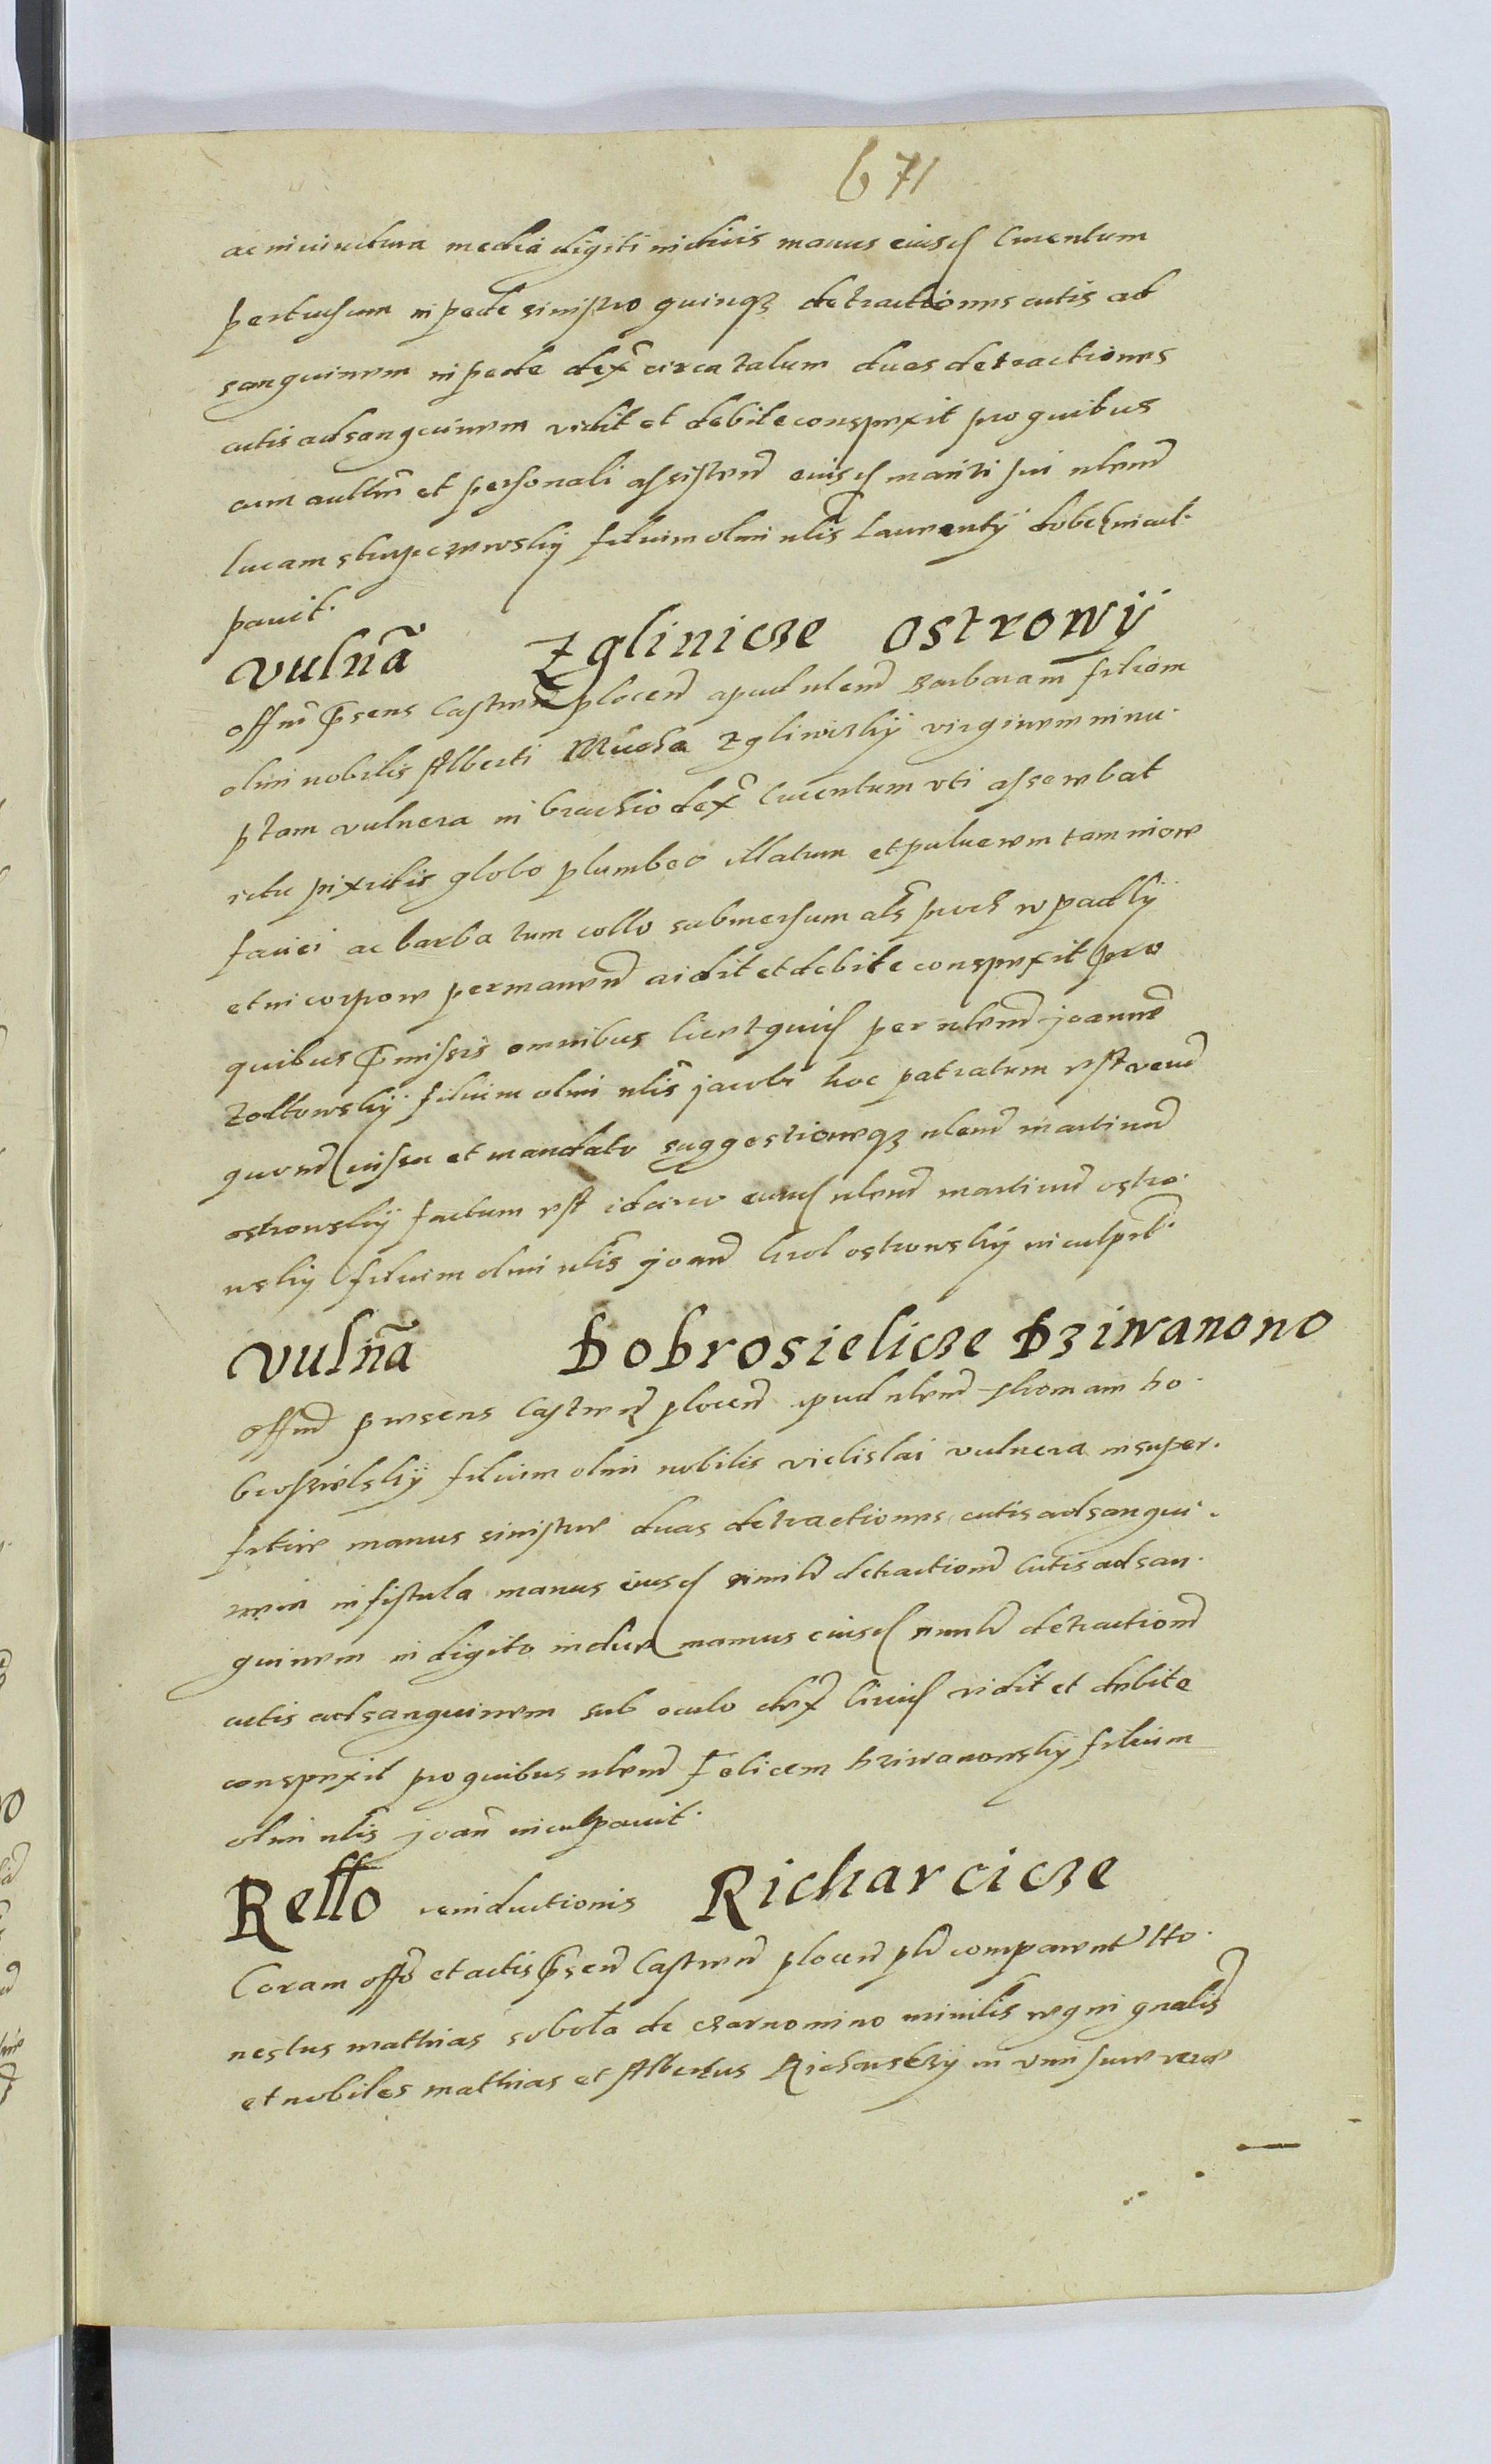 671
ac in iunctura media digiti indicis manus eiusd cruentum
pertusum in pede sinistro quinqz detractiones cutis ad
sanguinem in pede dex circa talum duas detractiones
cutis ad sanguinem vidit et debite conspexit pro quibus
cum et personali assisten eiusd mariti sui nlem
lucam filium olim nlis laurentÿ incul.
pauit.
Vulna Zglinicze Ostrowÿ
offm psens Castren plocen apud nlem Barbaram filiam
olim nobilis Alberti Mucha Zgliniczkÿ virginem innu.
ptam vulnera in brachio dex cruentum vti asserebat
ictu pixidis globo plumbeo illatum et puluerem tam in ore
faciei ac barba tum collo submersum als proch wpadlÿ
et in corpore permanen vidit et debite conspexit pro
quibus pmissis omnibus licet quid per nlem joanne
Zoltowskÿ filium olim nlis jacobi hoc patratum est verum
quond iussu et mandato suggestioneqz nlem martinum
ostrowskÿ factum est idcirco eund nlem martinum ostro.
wskÿ filium olim nlis joan krol ostrowskÿ inculpat.
Vulna Dobrosielicze Dziwanono
Offm presens Castren plocen apud nlem thomam Do.
brosielskÿ filium olim nobilis vulnera in super.
ficie manus sinistre duas detractiones cutis ad sangui.
nem in fistula manus eiusd simile detractionem cutis ad san.
guinem in digito indice manus eiusd simile detractionem
cutis ad sanguinem sub oculo dex liuid vidit et debite
conspexit pro quibus nlem Felicem Dziwanowskÿ filium
olim nlis joan inculpauit.
Rello Richarcicze
Coram offo et actis psen Castren plocen plr comparent Ho.
nestus mathias sobota de czarnomino mimilis regni gnalis
et nobiles mathias et Albertus Richarskÿ in vim sue vere